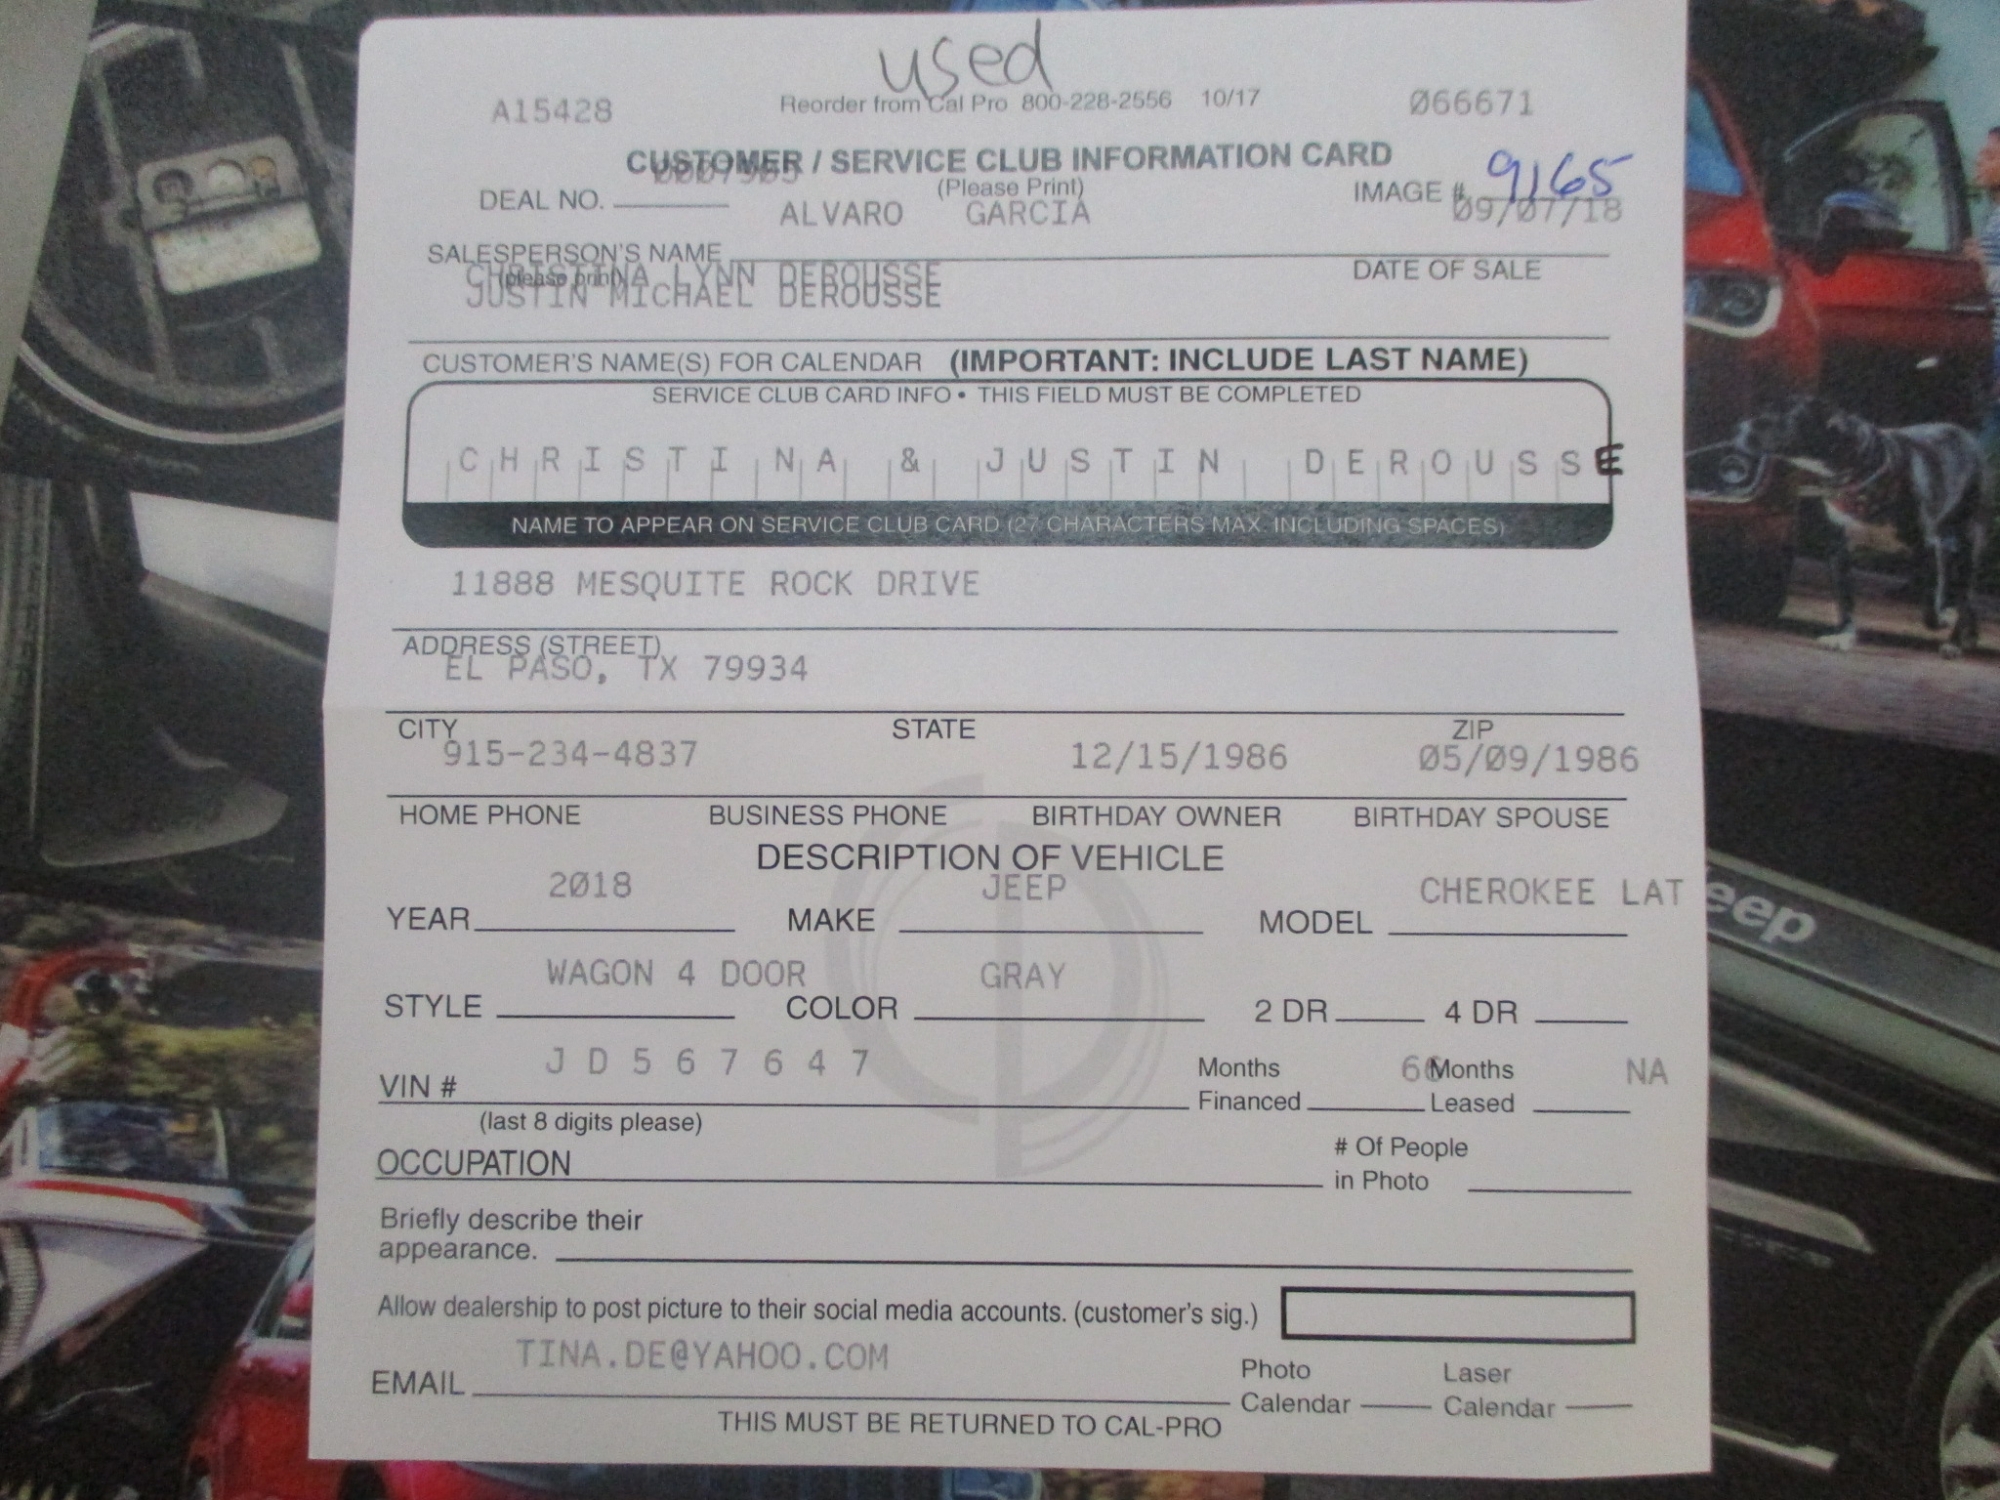 used
A15428 Reorder from Cal Pro 800-228-2556 10/17 066671
CUSTOMER / SERVICE CLUB INFORMATION CARD
(Please Print)
DEAL NO. IMAGE # 9165
ALVARO GARCIA 09/07/18
SALESPERSON'S NAME
(please print) DATE OF SALE
CHRISTINA LYNN DEROUSSE
JUSTIN MICHAEL DEROUSSE
CUSTOMER'S NAME(S) FOR CALENDAR (IMPORTANT: INCLUDE LAST NAME)
SERVICE CLUB CARD INFO • THIS FIELD MUST BE COMPLETED
CHRISTINA & JUSTIN DEROUSSE
NAME TO APPEAR ON SERVICE CLUB CARD (27 CHARACTERS MAX. INCLUDING SPACES)
11888 MESQUITE ROCK DRIVE
ADDRESS (STREET)
EL PASO, TX 79934
CITY STATE ZIP
915-234-4837 12/15/1986 05/09/1986
HOME PHONE BUSINESS PHONE BIRTHDAY OWNER BIRTHDAY SPOUSE
DESCRIPTION OF VEHICLE
2018 JEEP CHEROKEE LAT
YEAR MAKE MODEL
WAGON 4 DOOR GRAY
STYLE COLOR 2 DR 4 DR
JD567647 66 NA
VIN # Months Financed Months Leased
(last 8 digits please)
OCCUPATION # Of People in Photo
Briefly describe their
appearance.
Allow dealership to post picture to their social media accounts. (customer's sig.)
TINA.DE@YAHOO.COM
EMAIL Photo Calendar Laser Calendar
THIS MUST BE RETURNED TO CAL-PRO
eep